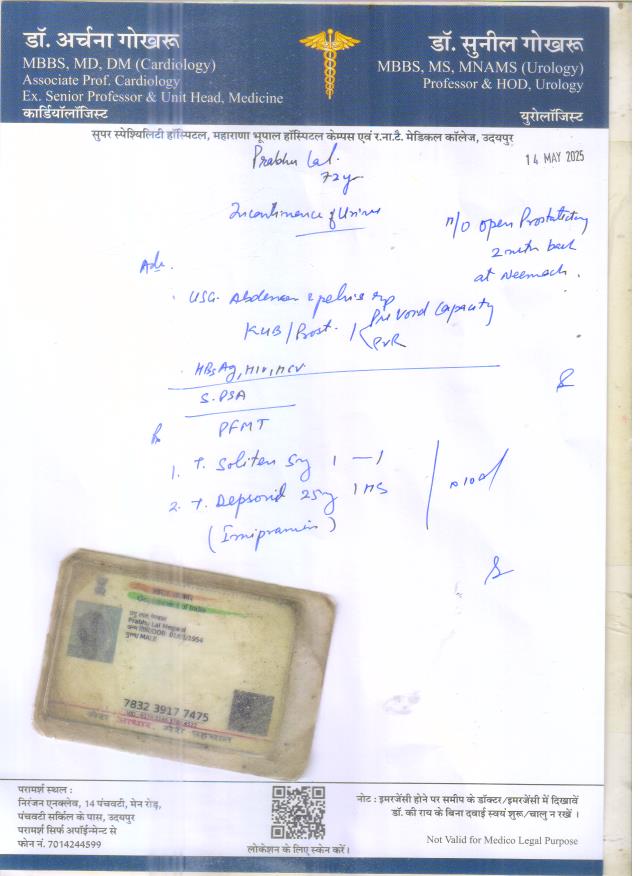 डॉ. अर्चना गोखरू
MBBS, MD, DM (Cardiology)
Associate Prof. Cardiology
Ex. Senior Professor & Unit Head, Medicine
कार्डियॉलॉजिस्ट
डॉ. सुनील गोखरू
MBBS, MS, MNAMS (Urology)
Professor & HOD, Urology
यूरोलॉजिस्ट
सुपर स्पेश्यिलिटी हॉस्पिटल, महाराणा भूपाल हॉस्पिटल केम्पस एवं र.ना.टै. मेडिकल कॉलेज, उदयपुर
Prabhu Lal.
72y
14 MAY 2025
Incontinence of Urine
H/O open Prostatectomy
2 mnth back
at Neemach.
Adv.
USG. Abdomen & pelvis
KUB / Prost.
Pre Void Capacity
PVR
HBsAg, HIV, HCV
S. PSA
PFMT
Rx
1. T. Soliten 5mg 1 — 1
2. T. Depsonil 25mg 1 HS
(Imipramin)
x 10d
भारत सरकार
Government of India
Prabhu Lal Meghwal
MALE
7832 3917 7475
मेरा आधार, मेरी पहचान
परामर्श स्थल :
निरंजन एनक्लेव, 14 पंचवटी, मेन रोड़,
पंचवटी सर्किल के पास, उदयपुर
परामर्श सिर्फ अपॉईन्मेन्ट से
फोन नं. 7014244599
लोकेशन के लिए स्केन करें।
नोट : इमरजेंसी होने पर समीप के डॉक्टर/इमरजेंसी में दिखावें
डॉ. की राय के बिना दवाई स्वयं शुरू/चालु न रखें ।
Not Valid for Medico Legal Purpose